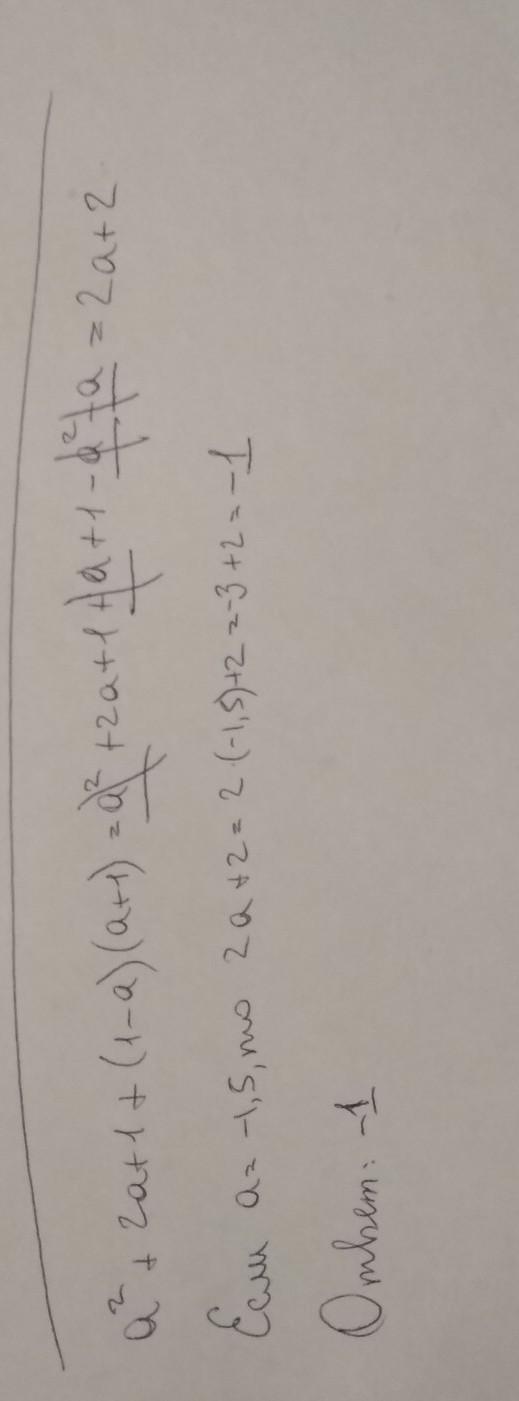 a² + 2a+1 + (1-a)(a+1) = a² +2a+1 +a+1 -a² -a = 2a+2
Если a= -1,5, то 2a+2 = 2·(-1,5)+2 =-3+2 = -1
Ответ: -1